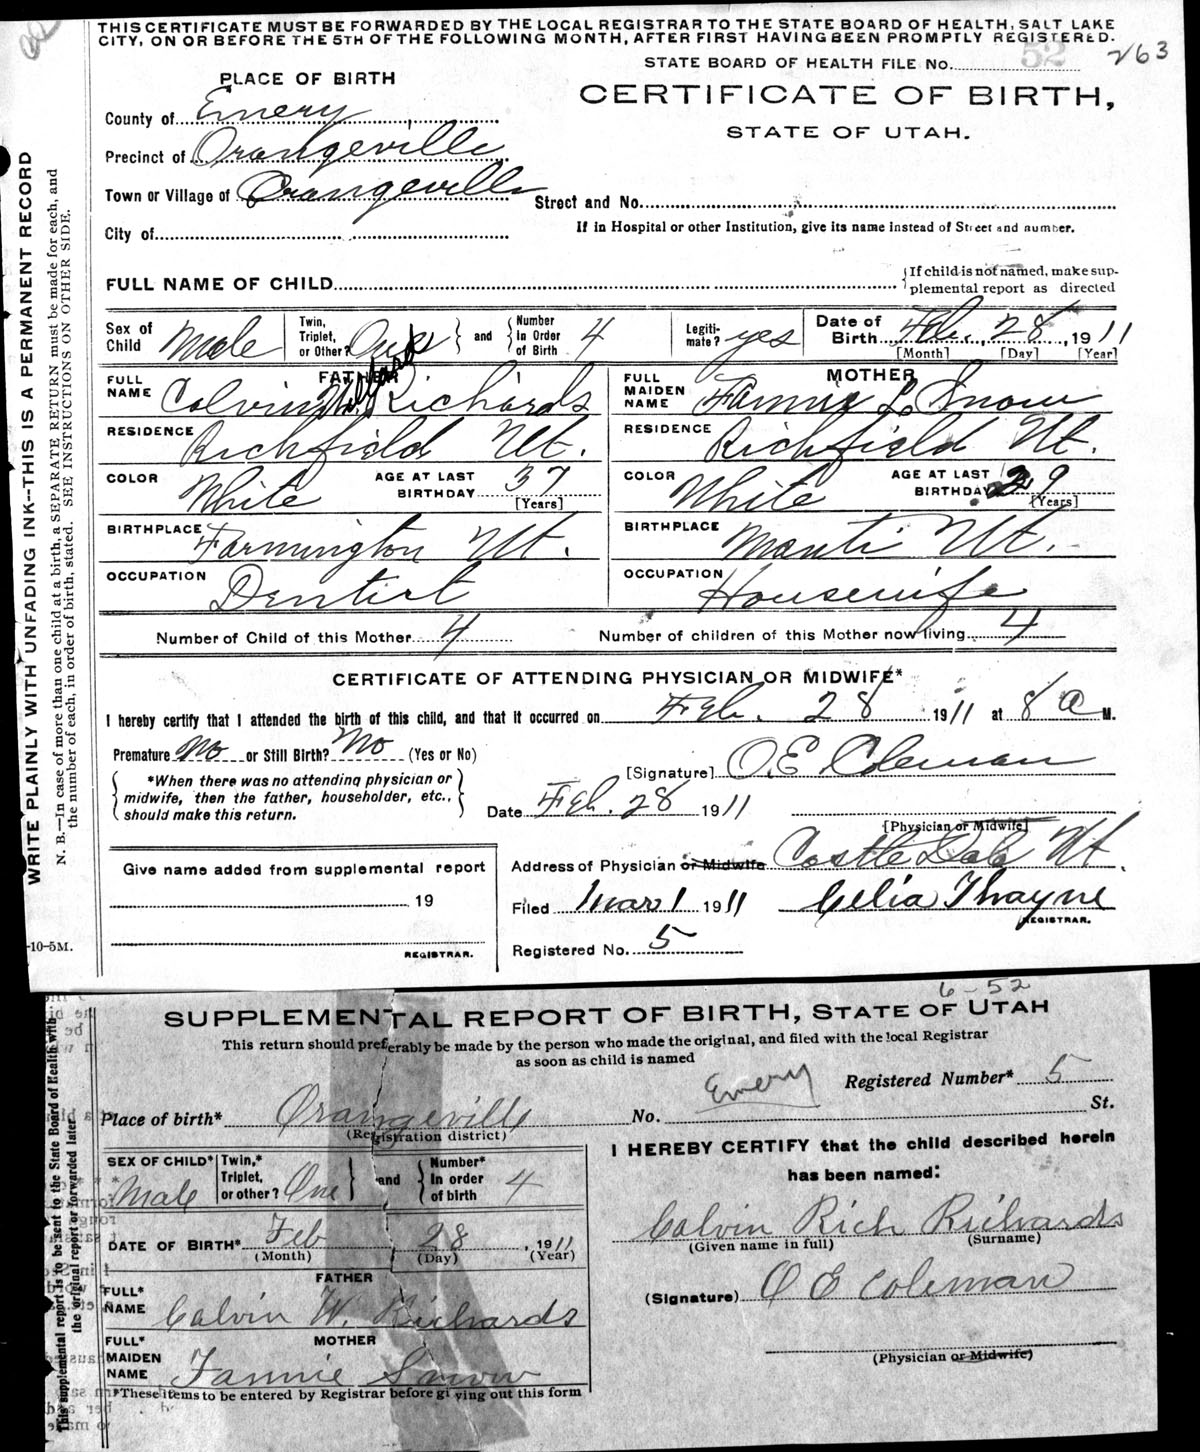 THIS CERTIFICATE MUST BE FORWARDED BY THE LOCAL REGISTRAR TO THE STATE BOARD OF HEALTH, SALT LAKE
CITY, ON OR BEFORE THE 5TH OF THE FOLLOWING MONTH, AFTER FIRST HAVING BEEN PROMPTLY REGISTERED.
STATE BOARD OF HEALTH FILE NO. 52 263
PLACE OF BIRTH
CERTIFICATE OF BIRTH,
STATE OF UTAH.
County of Emery
Precinct of Orangeville
Town or Village of Orangeville
Street and No.
City of
If in Hospital or other Institution, give its name instead of Street and number.
FULL NAME OF CHILD
If child is not named, make sup-
plemental report as directed
Sex of Child Male
Twin, Triplet, or Other? One and Number In Order of Birth 4
Legiti-mate? yes
Date of Birth Feb. 28, 1911
[Month] [Day] [Year]
FATHER
FULL NAME Calvin Willard Richards
RESIDENCE Richfield Ut.
COLOR White AGE AT LAST BIRTHDAY 37
[Years]
BIRTHPLACE Farmington Ut.
OCCUPATION Dentist
MOTHER
FULL MAIDEN NAME Fannie L. Snow
RESIDENCE Richfield Ut.
COLOR White AGE AT LAST BIRTHDAY 29
[Years]
BIRTHPLACE Manti Ut.
OCCUPATION Housewife
Number of Child of this Mother 4 Number of children of this Mother now living 4
CERTIFICATE OF ATTENDING PHYSICIAN OR MIDWIFE*
I hereby certify that I attended the birth of this child, and that it occurred on Feb. 28 1911 at 8 A M.
Premature No or Still Birth? No (Yes or No)
*When there was no attending physician or
midwife, then the father, householder, etc.,
should make this return.
[Signature] O.E Coleman
Date Feb. 28 1911
[Physician or Midwife]
Address of Physician or Midwife Castle Dale Ut.
Filed Mar 1 1911 Celia Thayne
REGISTRAR.
Registered No. 5
Give name added from supplemental report
19
REGISTRAR.
WRITE PLAINLY WITH UNFADING INK--THIS IS A PERMANENT RECORD
N. B.—In case of more than one child at a birth, a SEPARATE RETURN must be made for each, and
the number of each, in order of birth, stated. SEE INSTRUCTIONS ON OTHER SIDE.
-10-5M.
6-52
SUPPLEMENTAL REPORT OF BIRTH, STATE OF UTAH
This return should preferably be made by the person who made the original, and filed with the local Registrar
as soon as child is named
Emery
Registered Number* 5
Place of birth* Orangeville No. St.
(Registration district)
SEX OF CHILD* Male
Twin,* Triplet, or other? One and Number* In order of birth 4
DATE OF BIRTH* Feb 28, 1911
(Month) (Day) (Year)
FATHER
FULL* NAME Calvin W. Richards
MOTHER
FULL* MAIDEN NAME Fannie Snow
*These items to be entered by Registrar before giving out this form
I HEREBY CERTIFY that the child described herein
has been named:
Calvin Rich Richards
(Given name in full) (Surname)
(Signature) O E Coleman
(Physician or Midwife)
This supplemental report is to be sent to the State Board of Health with
the original report or forwarded later